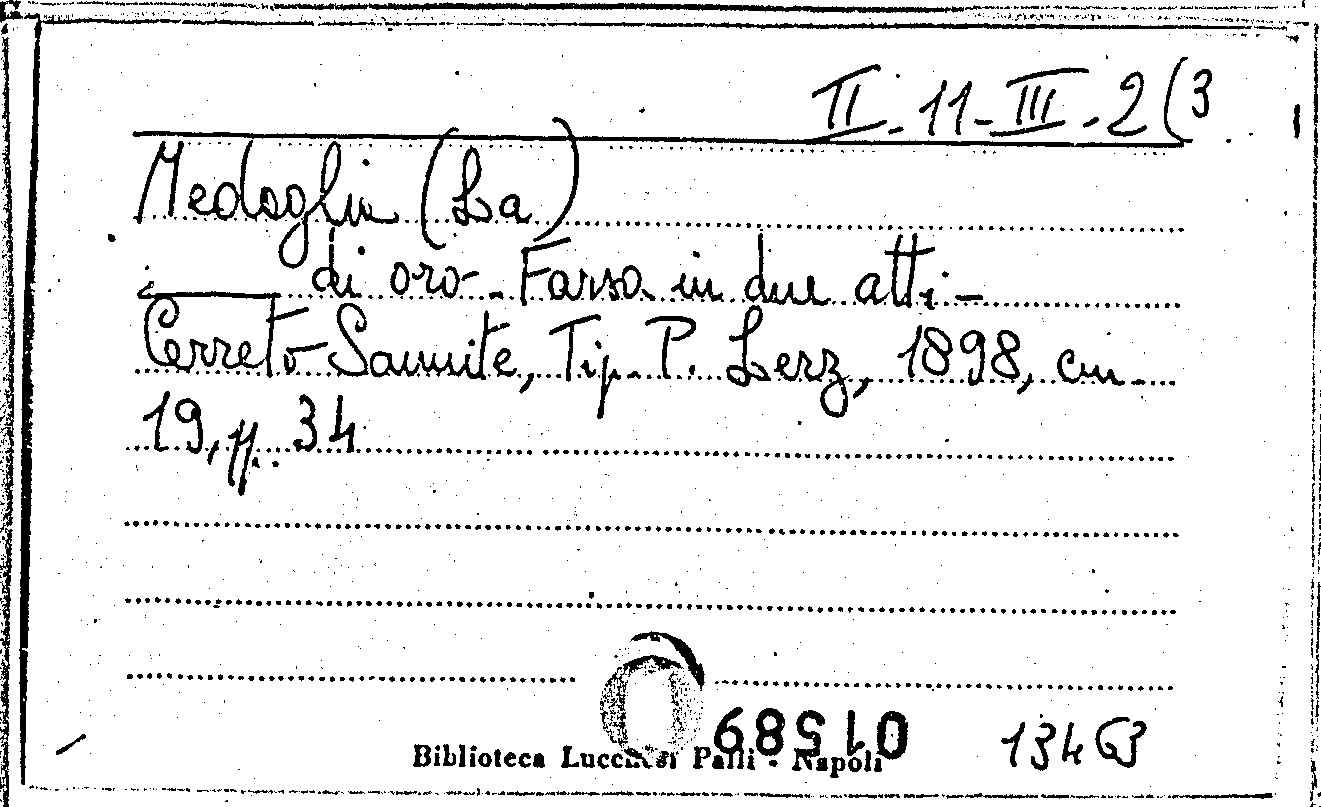 II-11-III-2(3
Medaglia (La)
di oro - Farsa in due atti -
Cerreto Sannite, Tip. P. Lerz, 1898, cm
19, pp. 34
01589
13463
Biblioteca Lucchesi Palli - Napoli